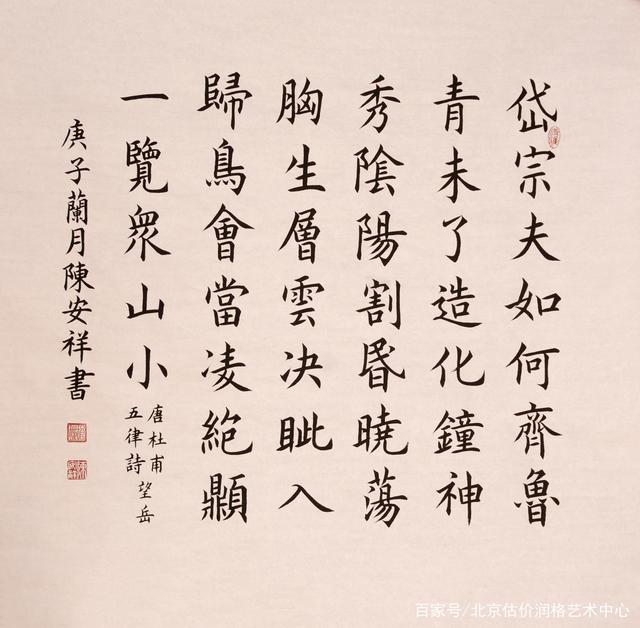 岱宗夫如何齊魯
青未了造化鐘神
秀陰陽割昏曉蕩
胸生層雲決眦入
歸鳥會當凌絕顛
一覽眾山小
唐杜甫望岳
五律詩
庚子蘭月陳安祥書
百家号/北京估价润格艺术中心